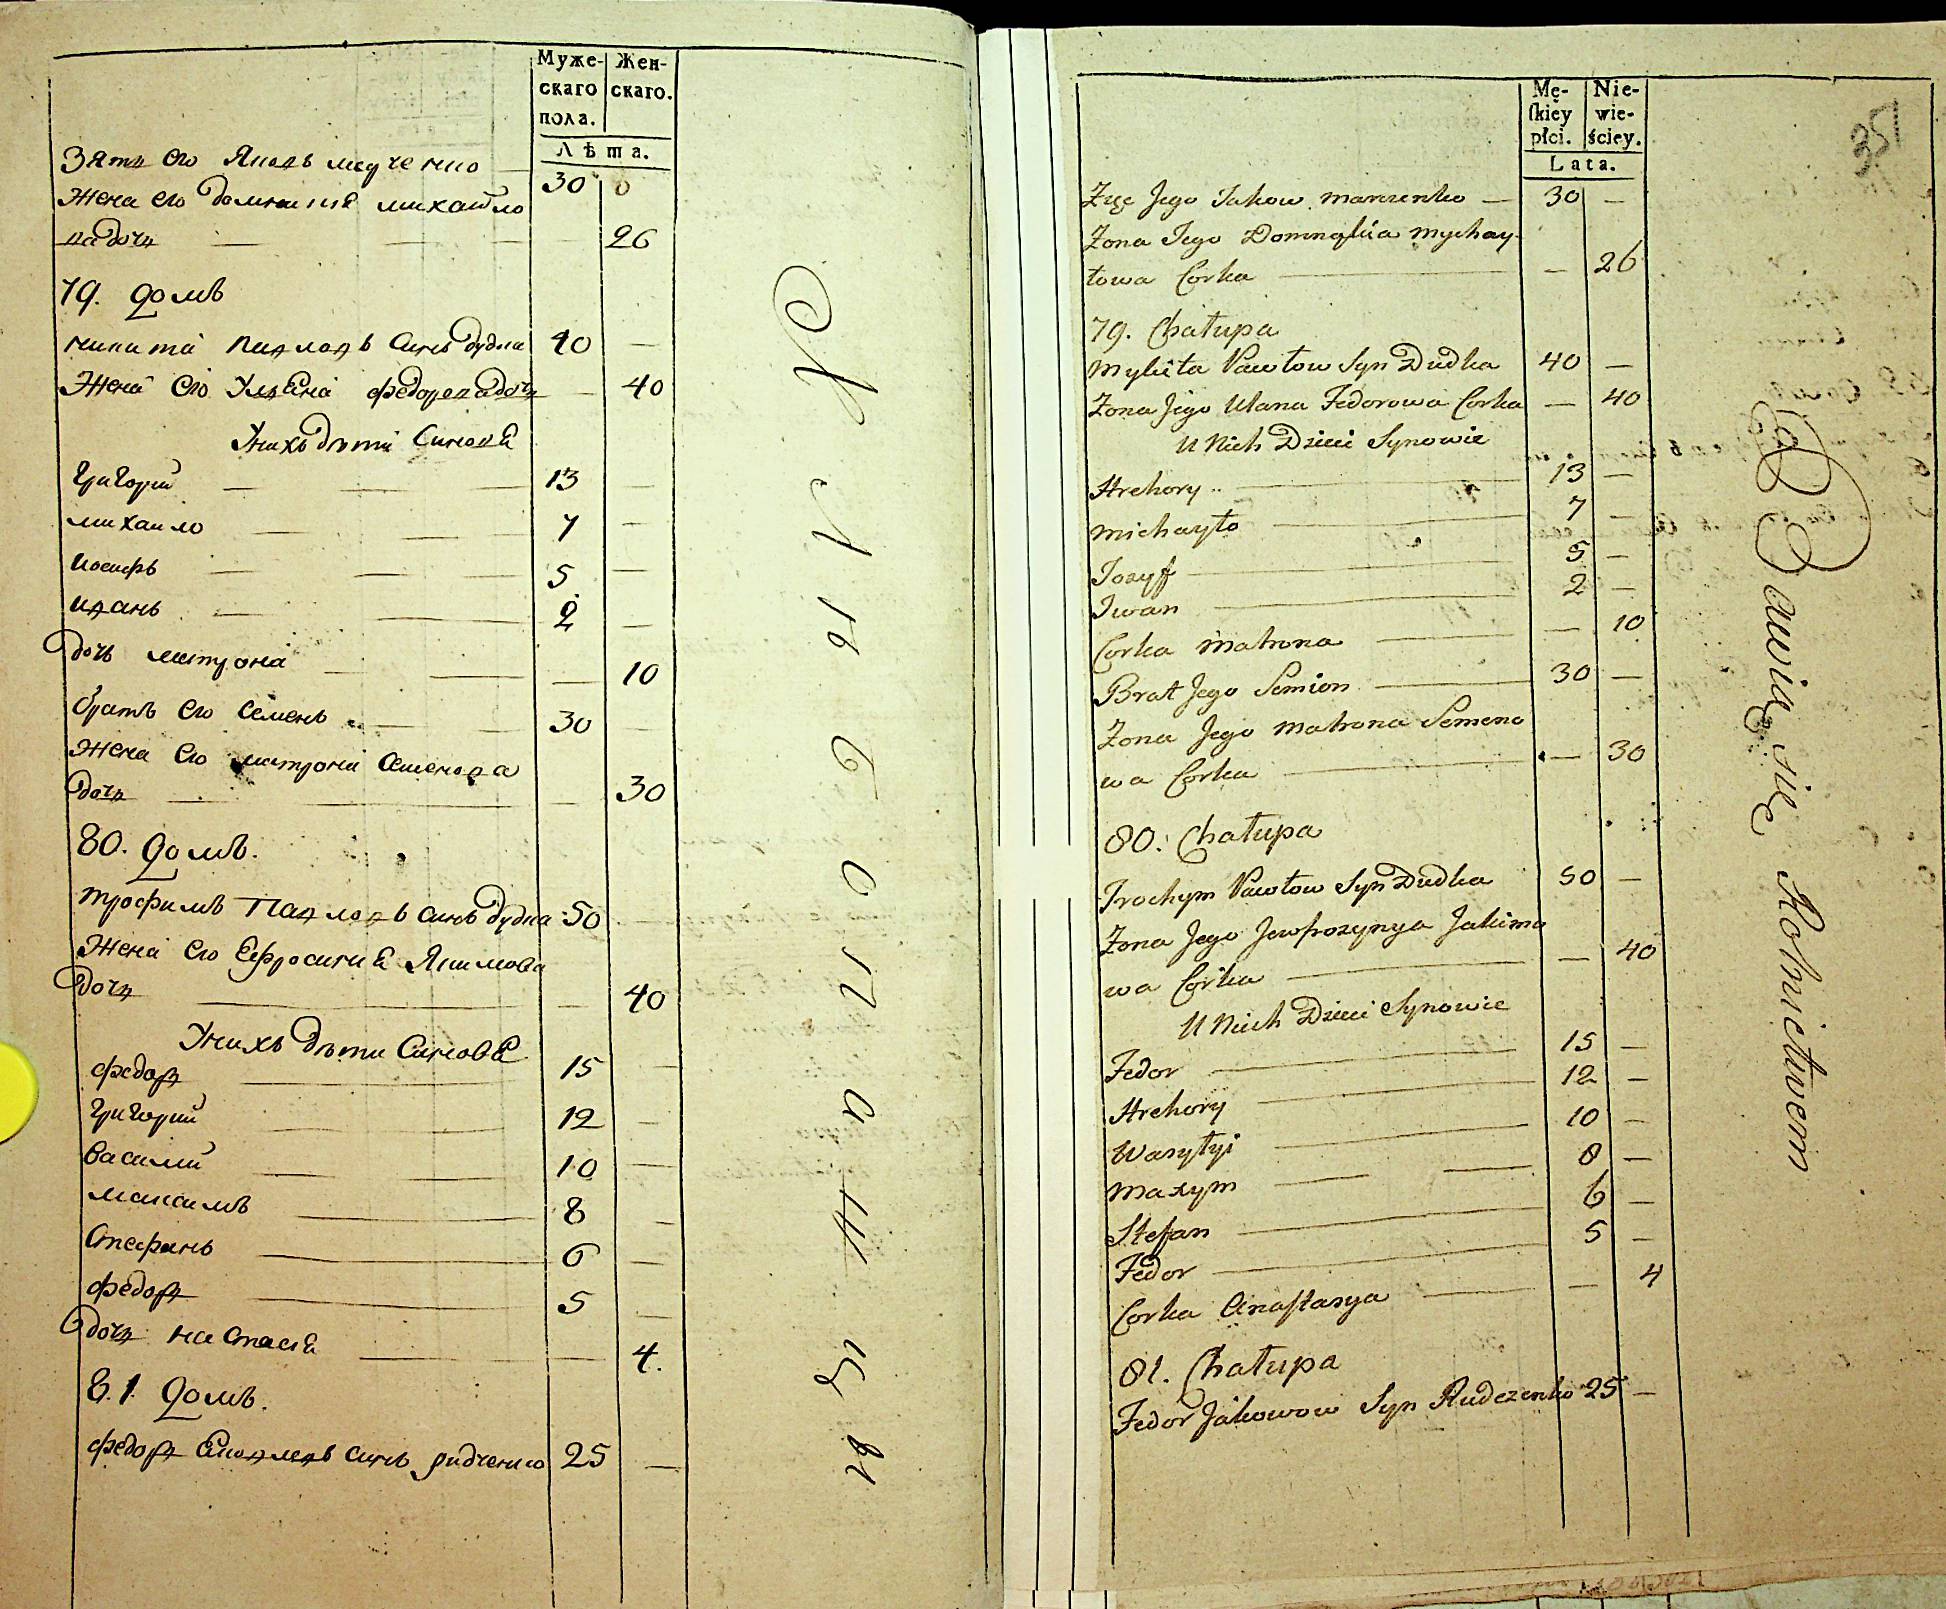 Муже-
скаго
пола.
Жен-
скаго.
Лѣта.
Зять его Яковъ 30
Жена его Домникия михайло
ва дочь 26
79. домъ
никита Павловъ синъ дудка 40 —
Жена его Улияна федорова дочь — 40
Унихъ дѣти Синовѣ
Григорий 13 —
михаило 7 —
иосифъ 5 —
иванъ 2 —
дочь матрона — 10
братъ его Семенъ 30 —
Жена его матрона Семенова
дочь — 30
80. домъ.
трофимъ Павловъ синъ дудка 50 —
Жена его Ефросиния Якимова
дочь — 40
Унихъ дѣти Синовѣ
федоръ 15 —
Григорий 12 —
Василий 10 —
максимъ 8 —
Стефанъ 6 —
федоръ 5 —
дочь настасия — 4.
81. домъ.
федоръ синъ рудченко 25 —
Mę-
ſkiey
płci.
Nie-
wie-
ściey.
Lata.
351
Zięć Jego Jakow 30 —
Zona Jego Domnykia Mychay-
łowa Corka — 26
79. Chałupa
Mykita Pawłow Syn Dudka 40 —
Zona Jego Ulana Fedorowa Corka — 40
U Nich Dzieci Synowie
Hrehory 13 —
Michayło 7 —
Jozyf 5 —
Iwan 2 —
Corka Matrona — 10
Brat Jego Semion 30 —
Zona Jego Matrona Semeno
wa Corka — 30
80. Chałupa
Trochym Pawłow Syn Dudka 50 —
Zona Jego Jewfrozynya Jakimo
wa Corka — 40
U Nich Dzieci Synowie
Fedor 15 —
Hrehory 12 —
Wasylyi 10 —
Maxym 8 —
Stefan 6 —
Fedor 5 —
Corka Anastasya — 4
81. Chałupa
Fedor Jakowow Syn Rudczenko 25 —
Bawią się Rolnictwem